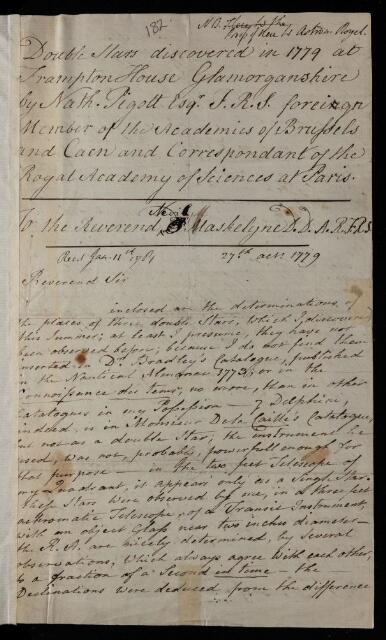 182
NB.
Double Stars discovered in 1779 at
Frampton House Glamorganshire
by Nath. Pigott Esqr. F.R.S. foreign
Member of the Academies of Brussels
and Caen and Correspondant of the
Royal Academy of Sciences at Paris.
Nevil
To the Reverend Maskelyne D.D. A.R. F.R.S
Read Jan. 11th 1781
27th 1779
Reverend Sir
inclosed are the determinations of
the places of three double Stars, which I discovered
this Summer; at least I presume, they have not
been observed before; because I do not find them
inserted in Dr. Bradley's Catalogue, published
in the Nautical Almanac 1773; or in the
Connoissance des tems, no more, than in other
Catalogues in my Possession — γ Delphini,
indeed, is in Monsieur De la Caille's Catalogue,
but not as a double Star; the instrument he
used, was not, probably, powerfull enough for
that purpose — in the two feet Telescope of
my Quadrant, it appears only as a Single Star.
These Stars were observed by me, in a three feet
achromatic Telescope of a Transit Instrument,
with an object Glass near two inches diameter —
the R.A. are nicely determined, by Several
observations, which always agree with each other,
to a fraction of a Second in time — the
Declinations were deduced from the difference